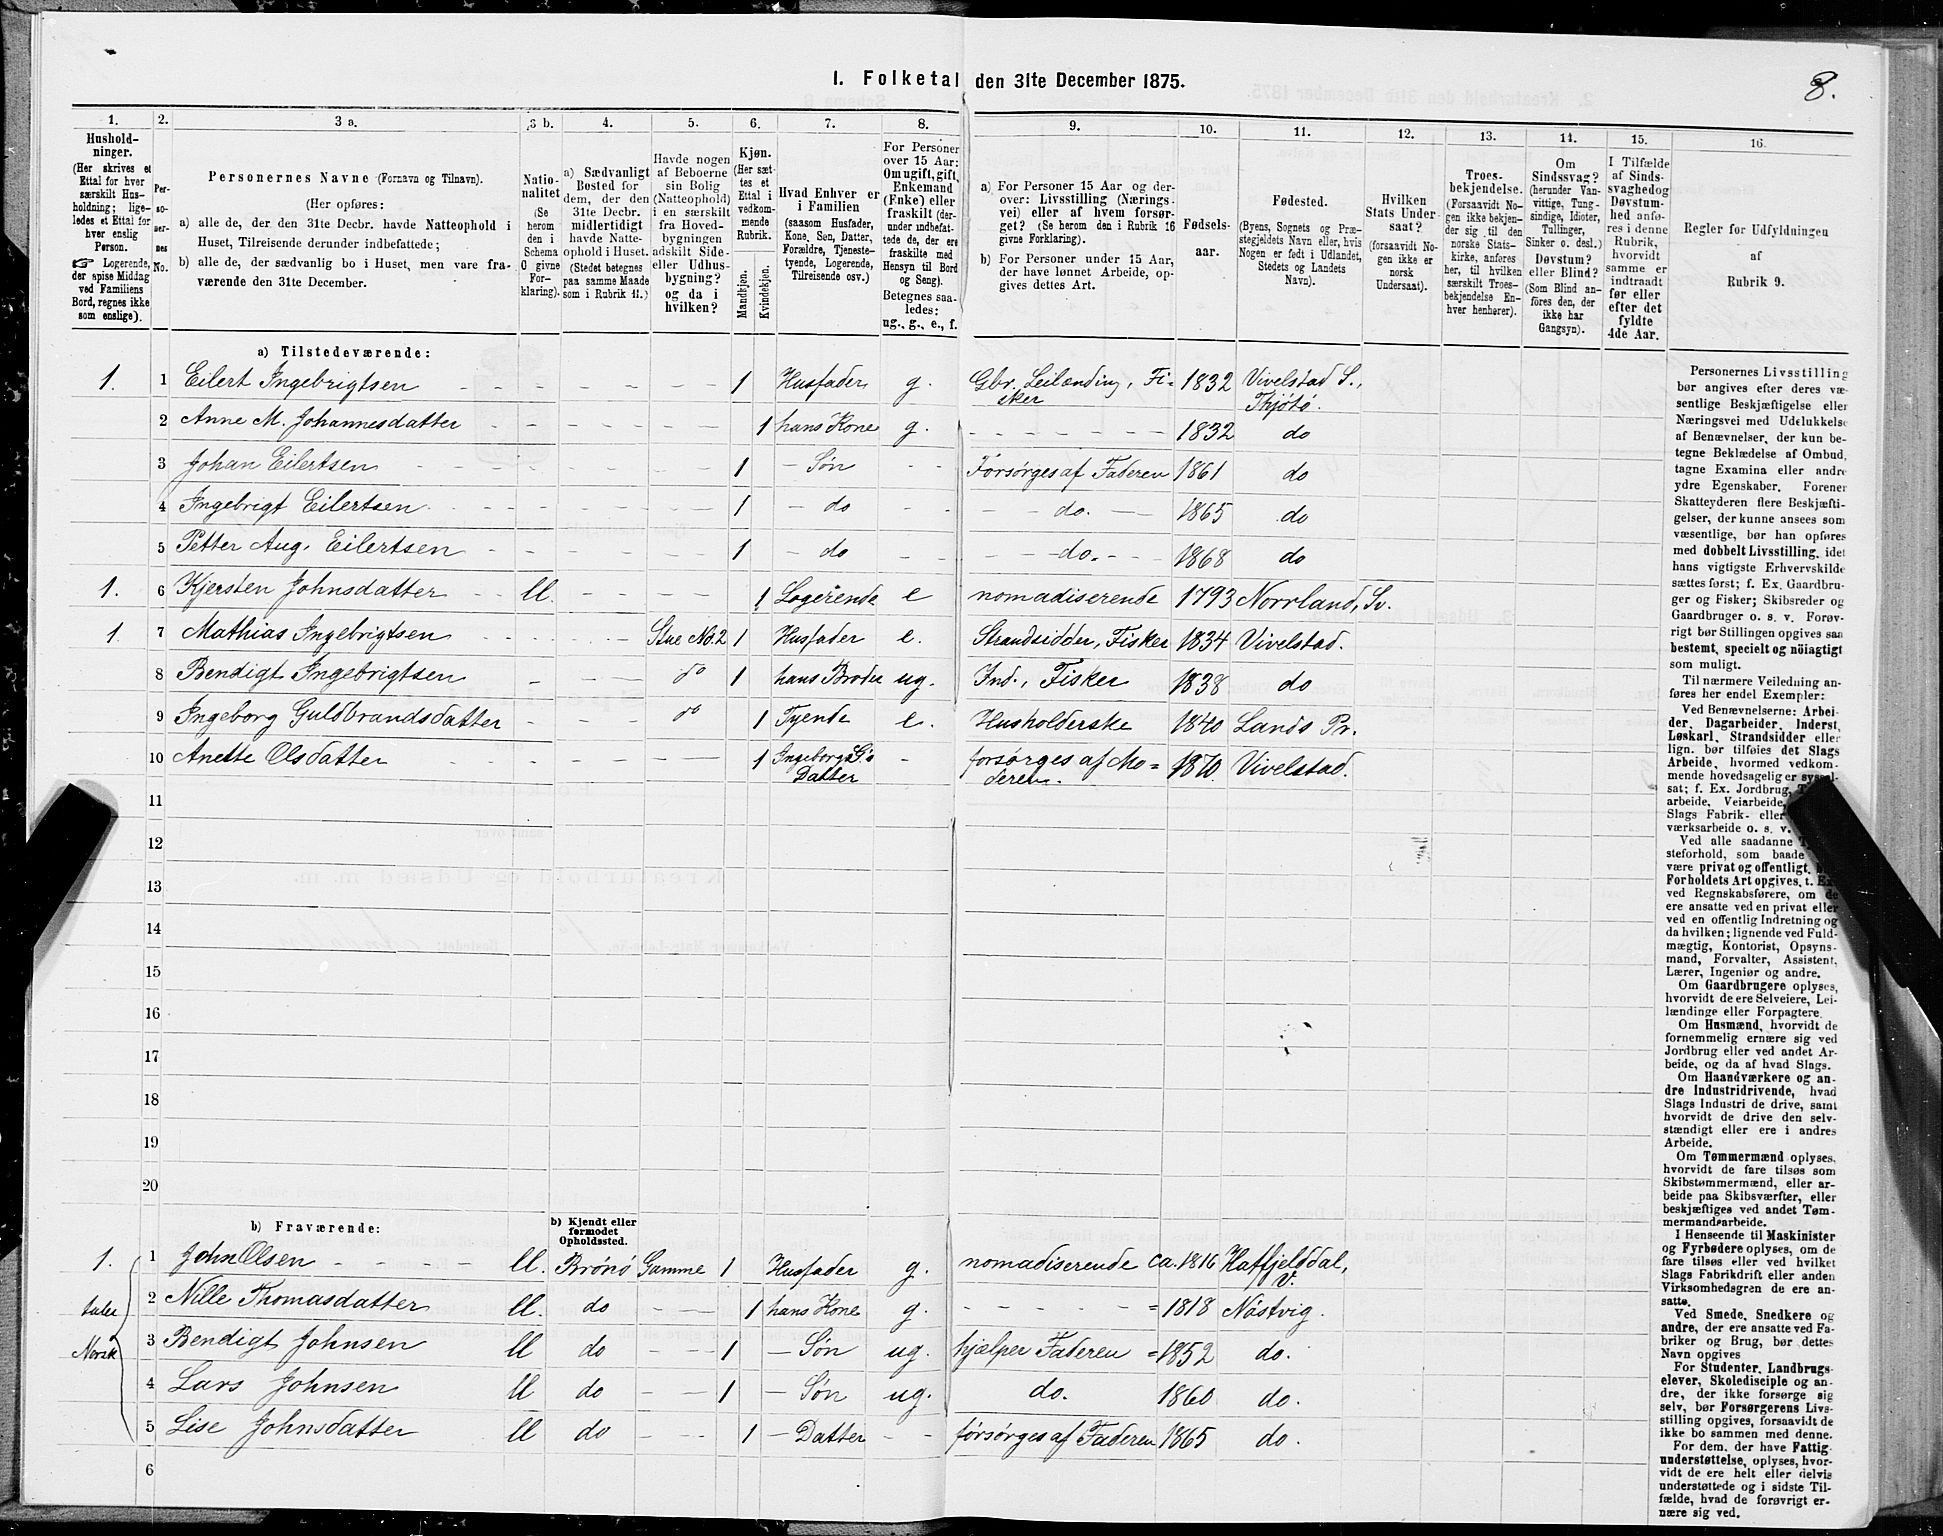 I. Folketal den 31te December 1875.
8.
1.
Hushold-
ninger.
(Her skrives et
Ettal for hver
særskilt Hus-
holdning; lige-
ledes et Ettal for
hver enslig
Person.
☞ Logerende,
der spise Middag
ved Familiens
Bord, regnes ikke
som enslige).
2.
Per-
so-
ner-
nes
No.
3 a.
Personernes Navne (Fornavn og Tilnavn).
(Her opføres:
a) alle de, der den 31te Decbr. havde Natteophold i
Huset, Tilreisende derunder indbefattede;
b) alle de, der sædvanlig bo i Huset, men vare fra-
værende den 31te December.
3 b.
Natio-
nalitet
(Se
herom
den i
Schema
O givne
For-
klaring).
4.
a) Sædvanligt
Bosted for
dem, der den
31te Decbr.
midlertidigt
havde Natte-
ophold i Huset.
(Stedet betegnes
paa samme Maade
som i Rubrik 11.)
5.
Havde nogen
af Beboerne
sin Bolig
(Natteophold)
i en særskilt
fra Hoved-
bygningen
adskilt Side-
eller Udhus-
bygning?
og da i
hvilken?
6.
Kjøn.
(Her sæt-
tes et
Ettal i
vedkom-
mende
Rubrik.
Mandkjøn.
Kvindekjøn.
7.
Hvad Enhver er
i Familien
(saasom Husfader,
Kone, Søn, Datter,
Forældre, Tjeneste-
tyende, Logerende,
Tilreisende osv.)
8.
For Personer
over 15 Aar:
Om ugift, gift,
Enkemand
(Enke) eller
fraskilt (der-
under indbefat-
tede de, der ere
fraskilte med
Hensyn til Bord
og Seng).
Betegnes saa-
ledes:
ug., g., e., f.
9.
a) For Personer 15 Aar og der-
over: Livsstilling (Nærings-
vei) eller af hvem forsør-
get? (Se herom den i Rubrik 16
givne Forklaring).
b) For Personer under 15 Aar,
der have lønnet Arbeide, op-
gives dettes Art.
10.
Fødsels-
aar.
11.
Fødested.
(Byens, Sognets og Præ-
stegjeldets Navn eller, hvis
Nogen er født i Udlandet,
Stedets og Landets
Navn).
12.
Hvilken
Stats Under-
saat?
(forsaavidt No-
gen ikke er
norsk
Undersaat).
13.
Troes-
bekjendelse.
(Forsaavidt No-
gen ikke bekjen-
der sig til den
norske Stats-
kirke, anføres
her, til hvilken
særskilt Troes-
bekjendelse En-
hver henhører).
14.
Om
Sindssvag?
(herunder Van-
vittige, Tung-
sindige, Idioter,
Tullinger,
Sinker o. desl.)
Døvstum?
eller Blind?
(Som Blind an-
føres den, der
ikke har
Gangsyn).
15.
I Tilfælde
af Sinds-
svaghed og
Døvstum-
hed anfø-
res i denne
Rubrik,
hvorvidt
samme er
indtraadt
før eller
efter det
fyldte
4de Aar.
16.
Regler for Udfyldningen
af
Rubrik 9.
a) Tilstedeværende:
1. 1 Eilert Ingebrigtsen 1 Husfader g. Gbr. Leilænding, Fi- 1832 Vivelstad S.,
sker Thjøtø.
2 Anne M. Johannesdatter 1 hans Kone g. 1832 do
3 Johan Eilertsen 1 Søn Forsørges af Faderen 1861 do
4 Ingebrigt Eilertsen 1 do do. 1865 do
5 Petter Aug. Eilertsen 1 do do. 1868 do
1. 6 Kjersten Johnsdatter ll. 1 Logerende e nomadiserende 1793 Norrland, Sv.
1. 7 Mathias Ingebrigtsen Stue No. 2 1 Husfader e. Strandsidder, Fisker 1834 Vivelstad.
8 Bendigt Ingebrigtsen do 1 hans Broder ug. Ind., Fisker 1838 do
9 Ingeborg Guldbrandsdatter do 1 Tyende e. Husholderske 1840 Lands Pr.
10 Anette Olsdatter 1 Ingeborg G's forsørges af Mo- 1870 Vivelstad.
Datter deren.
11
12
13
14
15
16
17
18
19
20
b) Fraværende:
b) Kjendt eller
formodet
Opholdssted.
1. 1 John Olsen ll. Brønø Gamme 1 Husfader g. nomadiserende ca. 1816 Hatfjelddal,
V.
2 Nille Thomasdatter ll. do 1 hans Kone g. 1818 Nøstvig.
taler
Norsk
3 Bendigt Johnsen ll do 1 Søn ug. hjælper Faderen 1852 do.
4 Lars Johnsen ll do 1 Søn ug. do. 1860 do.
5 Lise Johnsdatter ll do 1 Datter forsørges af Faderen 1865 do.
6
Personernes Livsstilling
bør angives efter deres væ-
sentlige Beskjæftigelse eller
Næringsvei med Udelukkelse
af Benævnelser, der kun be-
tegne Beklædelse af Ombud,
tagne Examina eller andre
ydre Egenskaber. Forener
Skatteyderen flere Beskjæfti-
gelser, der kunne ansees som
væsentlige, bør han opføres
med dobbelt Livsstilling, idet
hans vigtigste Erhvervskilde
sættes først; f. Ex. Gaardbru-
ger og Fisker; Skibsreder og
Gaardbruger o. s. v. Forøv-
rigt bør Stillingen opgives saa
bestemt, specielt og nøiagtigt
som muligt.
Til nærmere Veiledning an-
føres her endel Exempler:
Ved Benævnelserne: Arbei-
der, Dagarbeider, Inderst,
Løskarl, Strandsidder eller
lign. bør tilføies det Slags
Arbeide, hvormed vedkom-
mende hovedsagelig er syssel-
sat; f. Ex. Jordbrug,
arbeide, Veiarbeide,
Slags Fabrik- eller
værksarbeide o. s. v.
Ved alle saadanne
steforhold, som baade
være privat og offentligt,
Forholdets Art opgives, t. Ex.
ved Regnskabsførere, om de
ere ansatte ved en privat eller
ved en offentlig Indretning og
da hvilken; lignende ved Fuld-
mægtig, Kontorist, Opsyns-
mand, Forvalter, Assistent,
Lærer, Ingeniør og andre.
Om Gaardbrugere oplyses,
hvorvidt de ere Selveiere, Lei-
lændinge eller Forpagtere.
Om Husmænd, hvorvidt de
fornemmelig ernære sig ved
Jordbrug eller ved andet Ar-
beide, og da af hvad Slags.
Om Haandværkere og an-
dre Industridrivende, hvad
Slags Industri de drive, samt
hvorvidt de drive den selv-
stændigt eller ere i andres
Arbeide.
Om Tømmermænd oplyses,
hvorvidt de fare tilsøs som
Skibstømmermænd, eller ar-
beide paa Skibsværfter, eller
beskjæftiges ved andet Tøm-
mermandsarbeide.
I Henseende til Maskinister
og Fyrbødere oplyses, om de
fare tilsøs eller ved hvilket
Slags Fabrikdrift eller anden
Virksomhedsgren de ere an-
satte.
Ved Smede, Snedkere og
andre, der ere ansatte ved Fa-
briker og Brug, bør dettes
Navn opgives
For Studenter, Landbrugs-
elever, Skoledisciple og an-
dre, der ikke forsørge sig
selv, bør Forsørgerens Livs-
stilling opgives, forsaavidt de
ikke bo sammen med denne.
For dem, der have Fattig-
understøttelse, oplyses, hvor-
vidt de ere helt eller delvis
understøttede og i sidste Til-
fælde, hvad de forøvrigt er-
nære sig ved.